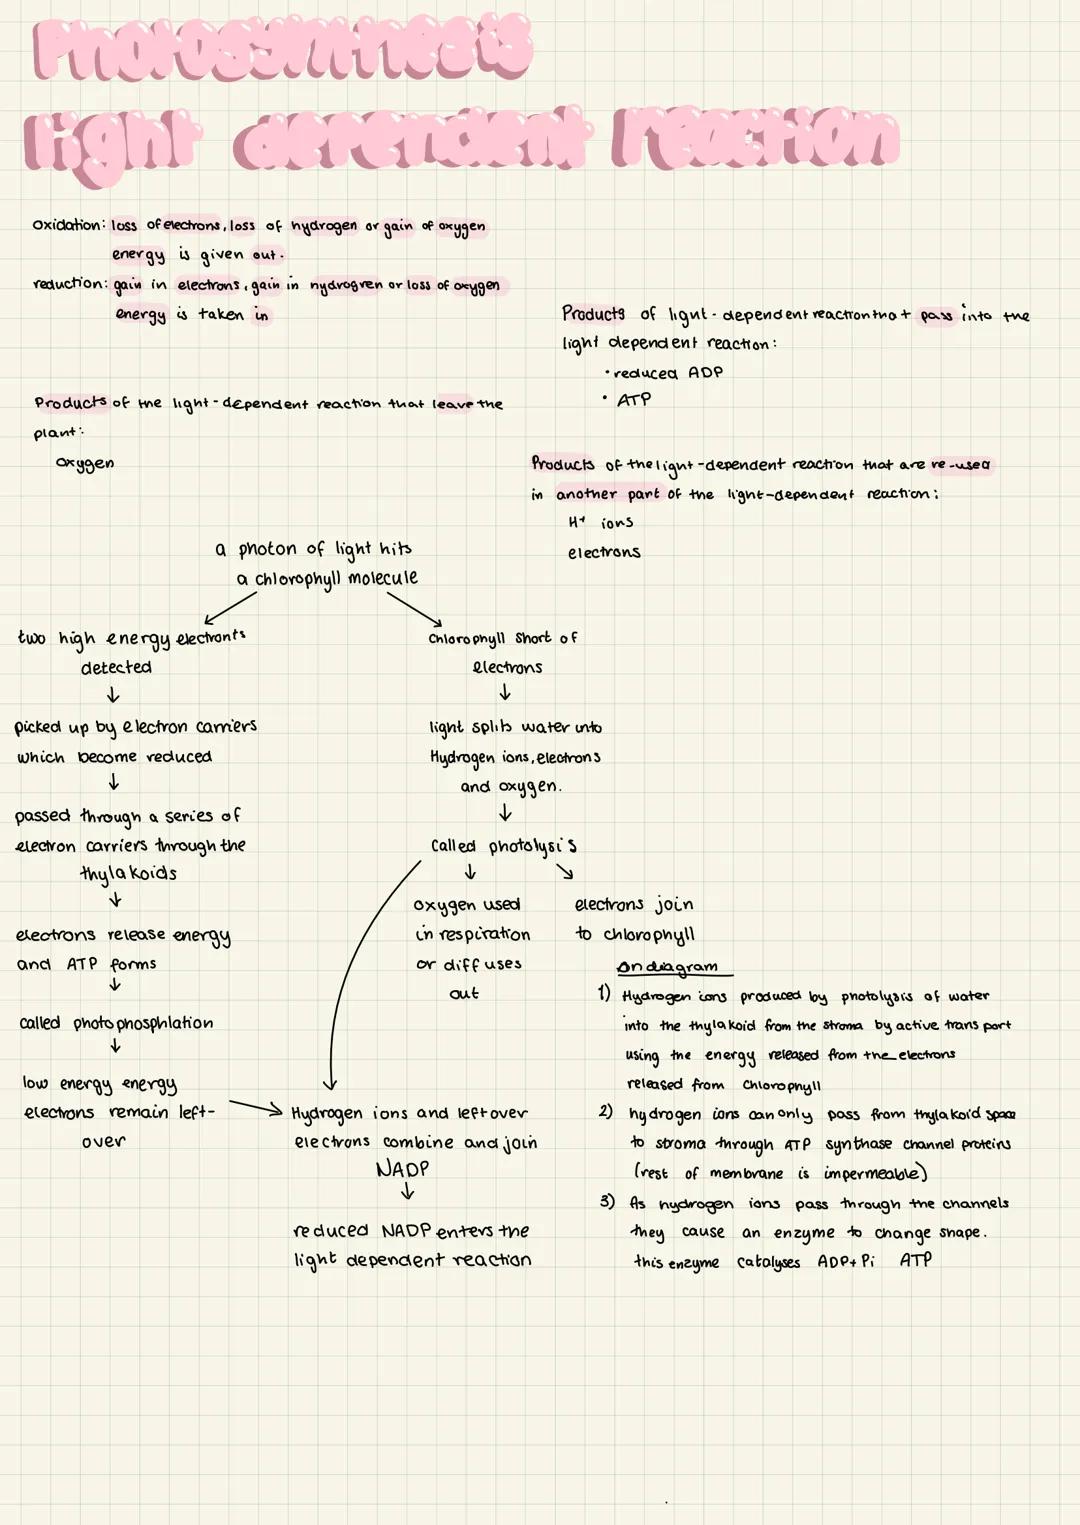 Photosynthesis
light dependent reaction
oxidation: loss of electrons, loss of hydrogen or gain of oxygen
energy is given out.
reduction: gain in electrons, gain in hydrogren or loss of oxygen
energy is taken in
Products of light-dependent reaction that pass into the
light dependent reaction:
• reduced ADP
• ATP
Products of the light-dependent reaction that leave the
plant:
oxygen
Products of the light-dependent reaction that are re-used
in another part of the light-dependent reaction:
H+ ions
electrons
a photon of light hits
a chlorophyll molecule
two high energy electronts
detected
↓
picked up by electron carriers
which become reduced
↓
passed through a series of
electron carriers through the
thylakoids
↓
electrons release energy
and ATP forms
↓
called photophosphlation
↓
low energy energy
electrons remain left-
over
Chlorophyll short of
electrons
↓
light splits water into
Hydrogen ions, electrons
and oxygen.
↓
called photolysis
oxygen used
in respiration
or diffuses
out
electrons join
to chlorophyll
Hydrogen ions and leftover
electrons combine and join
NADP
↓
reduced NADP enters the
light dependent reaction
on diagram
1) Hydrogen ions produced by photolysis of water
into the thylakoid from the stroma by active transport
using the energy released from the electrons
released from chlorophyll
2) hydrogen ions can only pass from thylakoid space
to stroma through ATP synthase channel proteins
(rest of membrane is impermeable)
3) As hydrogen ions pass through the channels
they cause an enzyme to change shape.
this enzyme catalyses ADP+Pi ATP